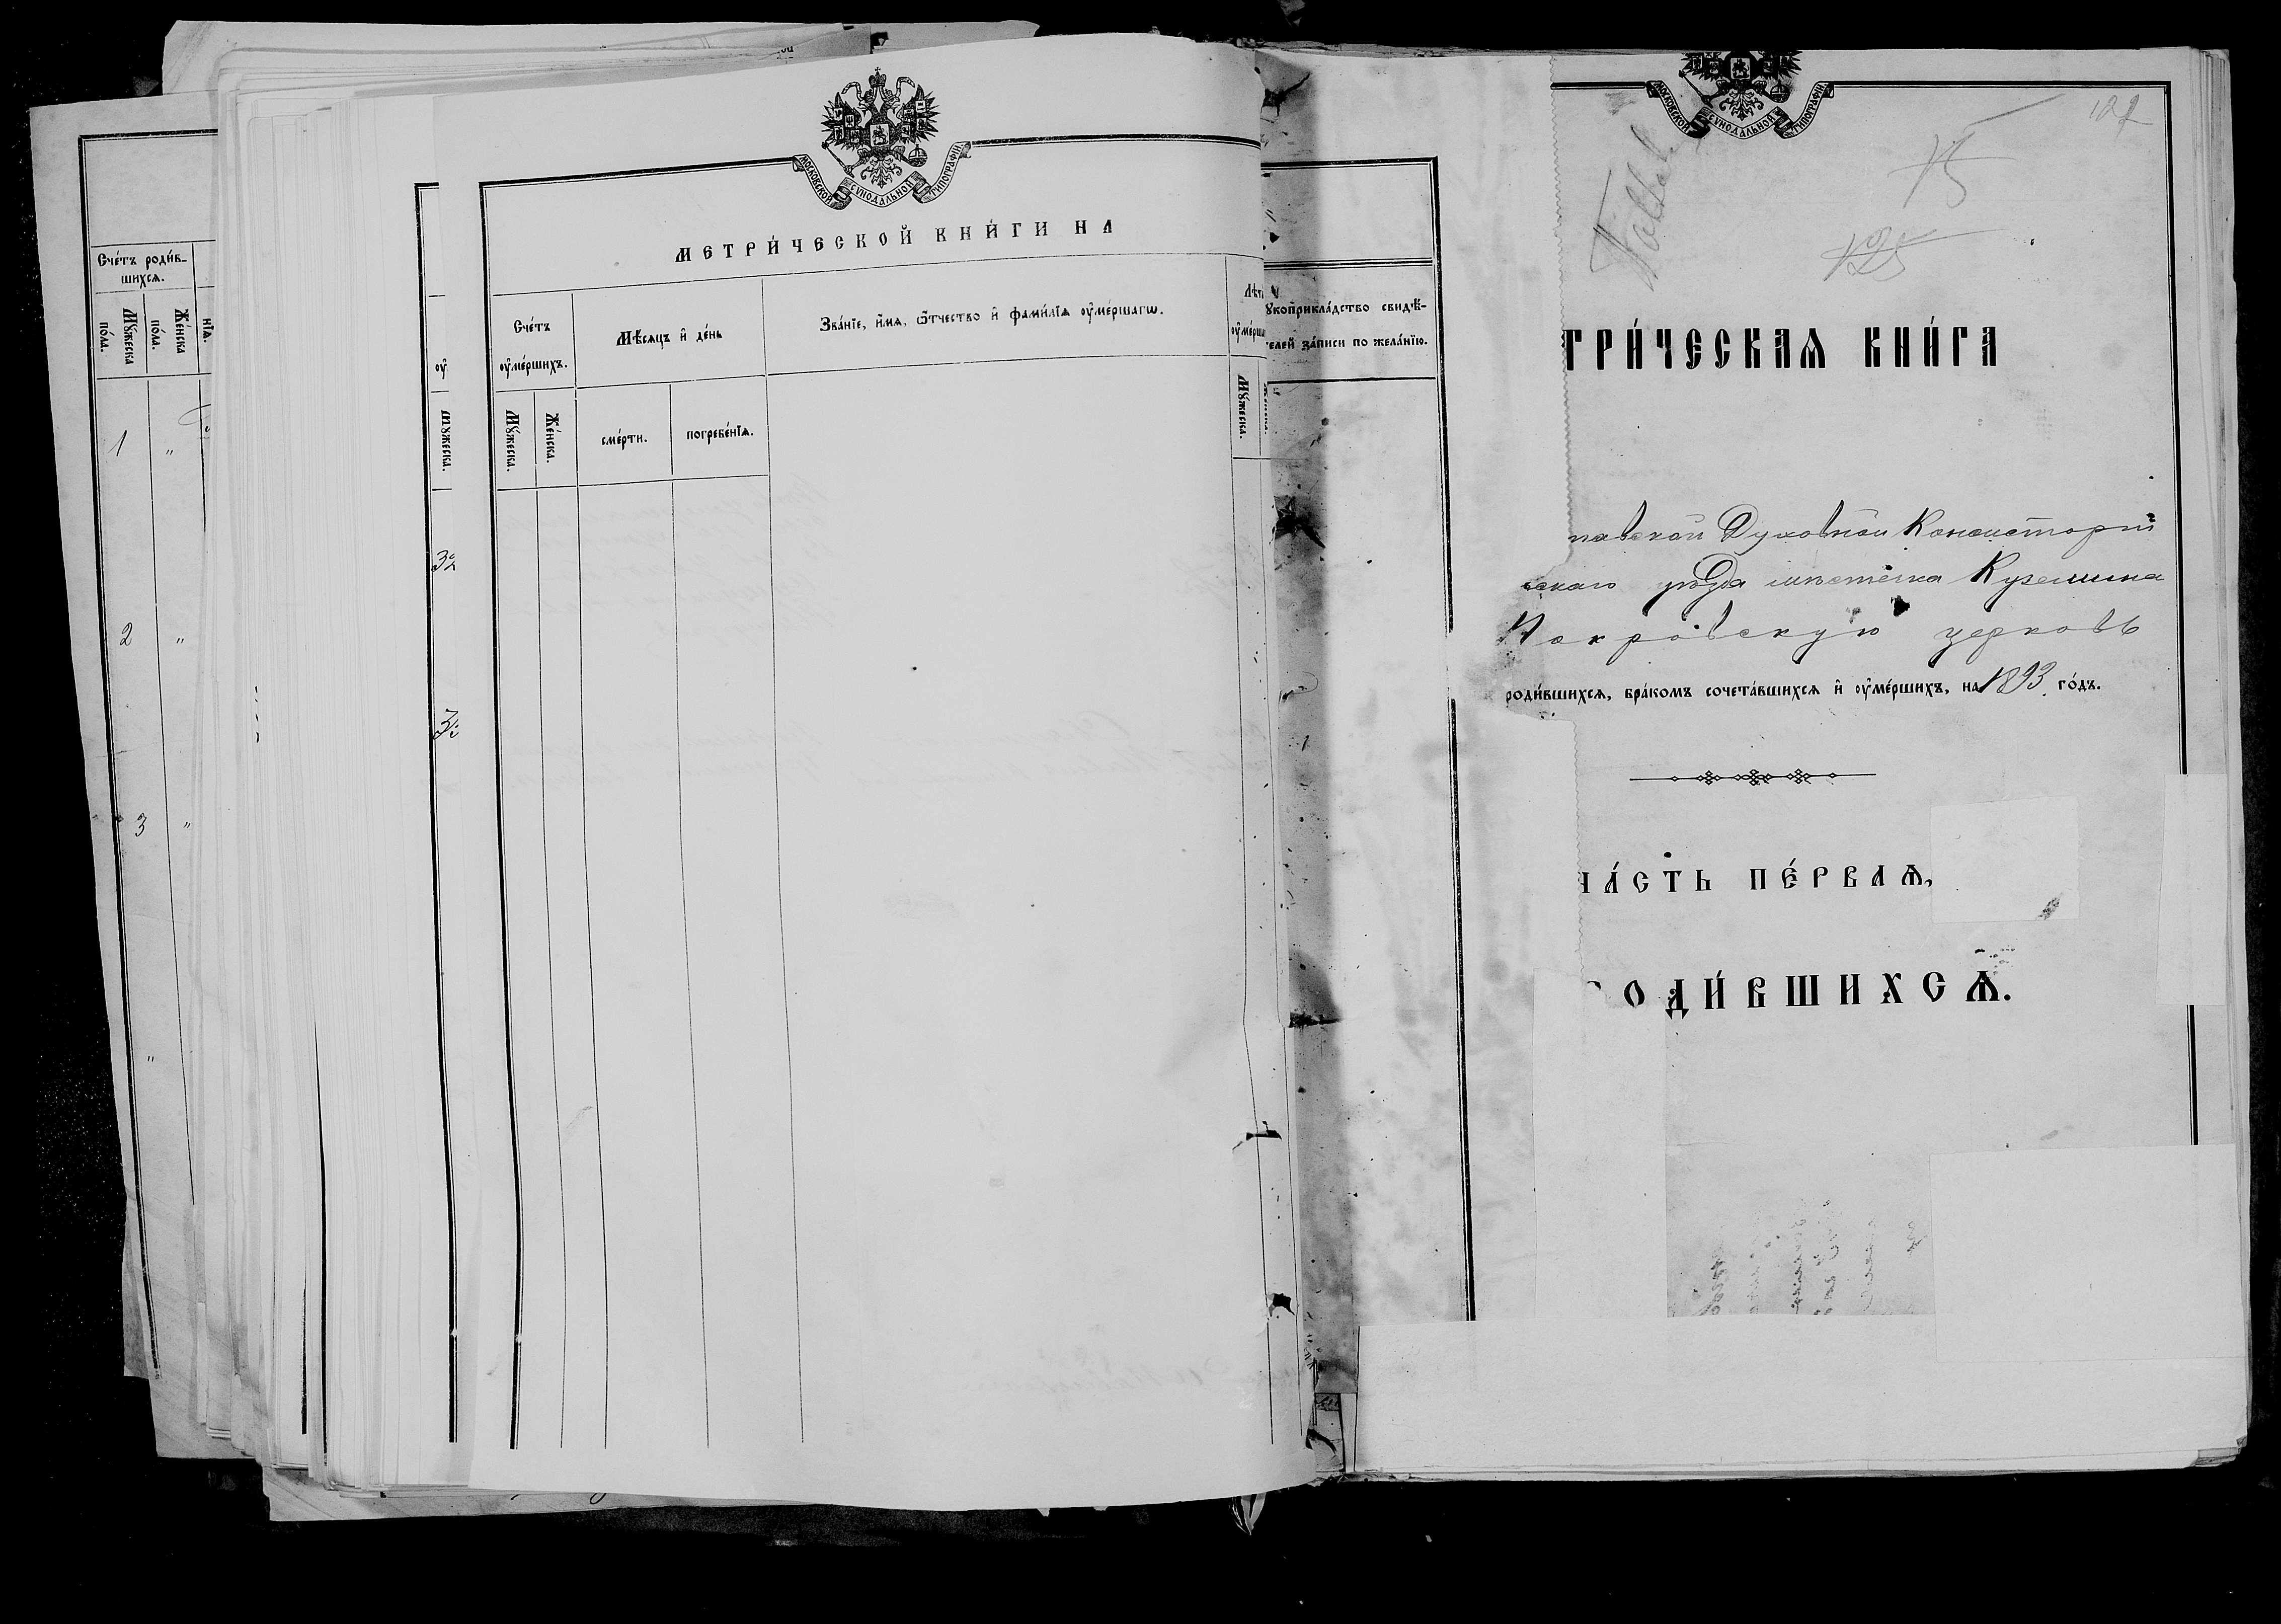 Счéтъ роди́в-
шихсѧ.
Мꙋ́жеска
по́ла.
Же́нска
по́ла.
нїѧ.
1 "
2 "
3 "
"
оу҆
Мꙋ́жеска.
32
МОСКОВСКОЙ СѴНОДАЛЬНОЙ ТИПОГРАФІИ
МЕТРИ́ЧЕСКОЙ КНИ́ГИ НА
Счéтъ
оу҆ме́ршихъ.
Мѣ́сѧцъ и҆ де́нь
Зва́нїе, и҆́мѧ, ѻ҆́тчество и҆ фами́лїѧ оу҆ме́ршагѡ.
Лѣт
оу҆ме́рша
Мꙋ́жеска.
Же́нска.
сме́рти.
погребе́нїѧ.
Мꙋ́жеска.
ꙋкоприкла́дство свидѣ́-
елей за́писи по жела́нїю.
МОСКОВСКОЙ СѴНОДАЛЬНОЙ ТИПОГРАФІИ
15
125
ТРИ́ЧЕСКАѦ КНИ́ГА
тавской Духовной Консисторіи
скаго уѣзда мѣстечка Куземина
Покровскую церковь
роди́вшихсѧ, бра́комъ сочета́вшихсѧ и҆ оу҆ме́ршихъ, на 1893 го́дъ.
ЧА́СТЬ ПЕ́РВАѦ,
ОДИ́ВШИХСѦ.